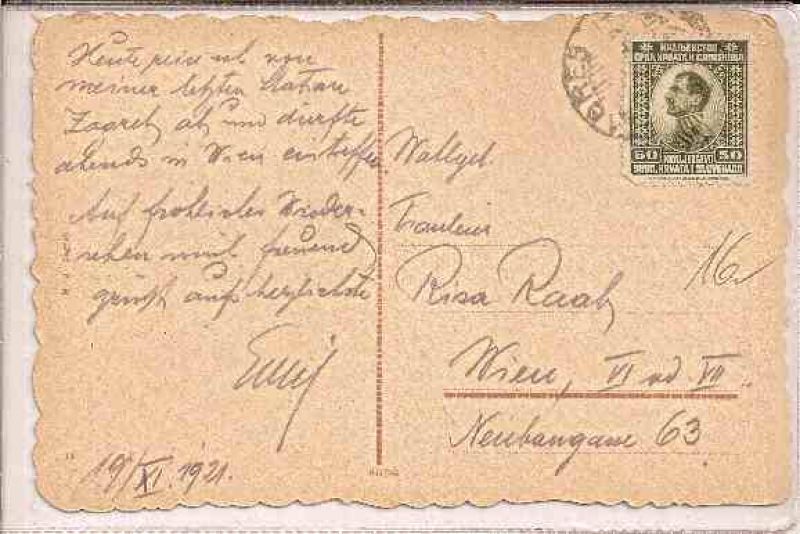 Heute reise ich von
meiner letzten Station
Zagreb ab und dürfte
abends in Wien eintreffen.
Auf fröhliches Wieder-
sehen mich freuend
grüßt aufs herzlichste
Emil
19/XI. 1921.
ZAGREB
КРАЉЕВСТВО
СРБА, ХРВАТА И СЛОВЕНАЦА
50 50
KRALJEVSTVO
SRBA, HRVATA I SLOVENACA
Wohlgeb.
Fräulein
Risa Raab
Wien, VI od. VII.
Neubaugasse 63
16